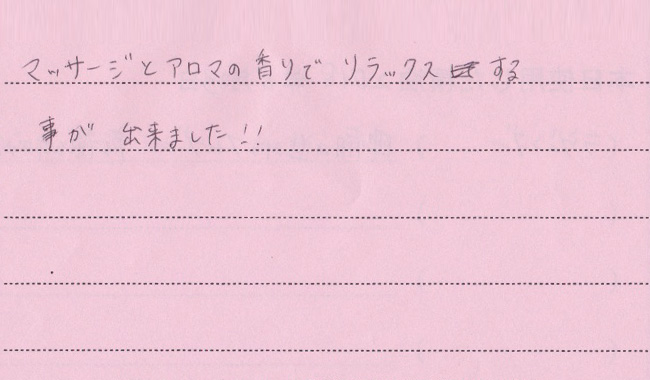 マッサージとアロマの香りで リラックス する
事が 出来ました!!